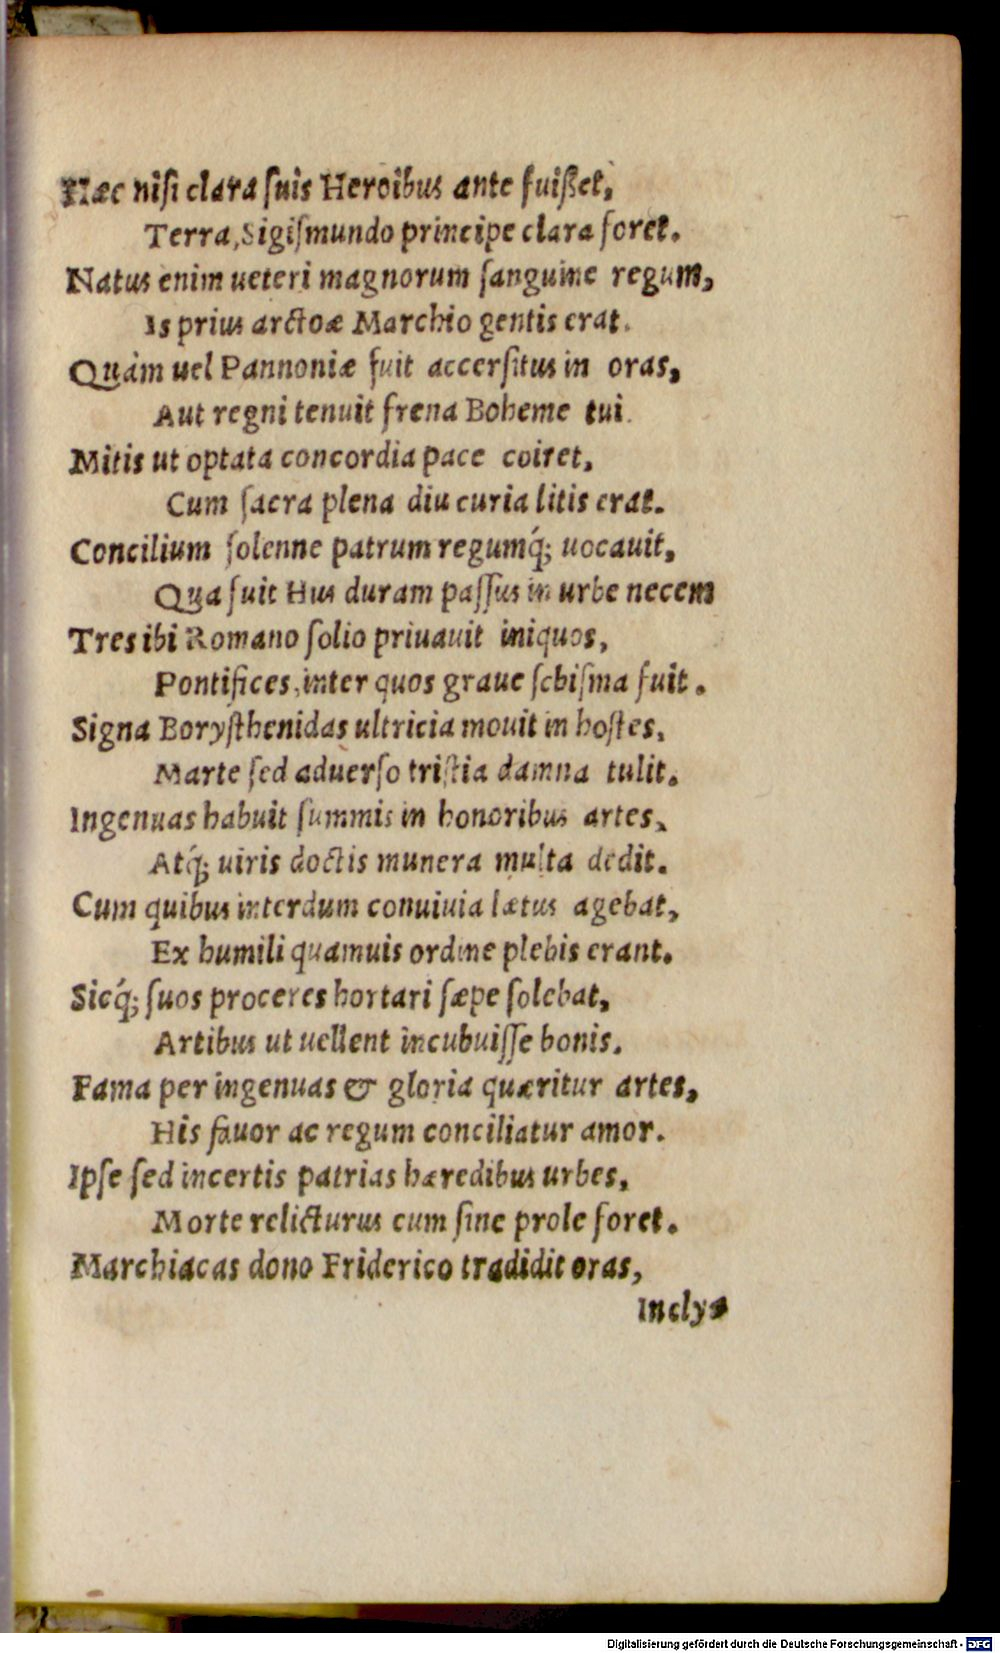 Hæc nisi clara suis Heroibus ante fuißet,
Terra, Sigiſmundo principe clara foret.
Natus enim ueteri magnorum ſanguine regum,
Is prius arctoæ Marchio gentis erat.
Quàm uel Pannoniæ fuit accerſitus in oras,
Aut regni tenuit frena Boheme tui.
Mitis ut optata concordia pace coiret,
Cum ſacra plena diu curia litis erat.
Concilium ſolenne patrum regumq́; uocauit,
Qua fuit Hus duram paſſus in urbe necem
Tres ibi Romano ſolio priuauit iniquos,
Pontifices, inter quos graue ſchiſma fuit.
Signa Boryſthenidas ultricia mouit in hoſtes,
Marte ſed aduerſo triſtia damna tulit.
Ingenuas habuit ſummis in honoribus artes,
Atq́; uiris doctis munera multa dedit.
Cum quibus interdum conuiuia lætus agebat,
Ex humili quamuis ordine plebis erant.
Sicq́; ſuos proceres hortari ſæpe ſolebat,
Artibus ut uellent incubuiſſe bonis.
Fama per ingenuas & gloria quæritur artes,
His fauor ac regum conciliatur amor.
Ipſe ſed incertis patrias hæredibus urbes,
Morte relicturus cum ſine prole foret.
Marchiacas dono Friderico tradidit oras,
Incly-
Digitalisierung gefördert durch die Deutsche Forschungsgemeinschaft - DFG